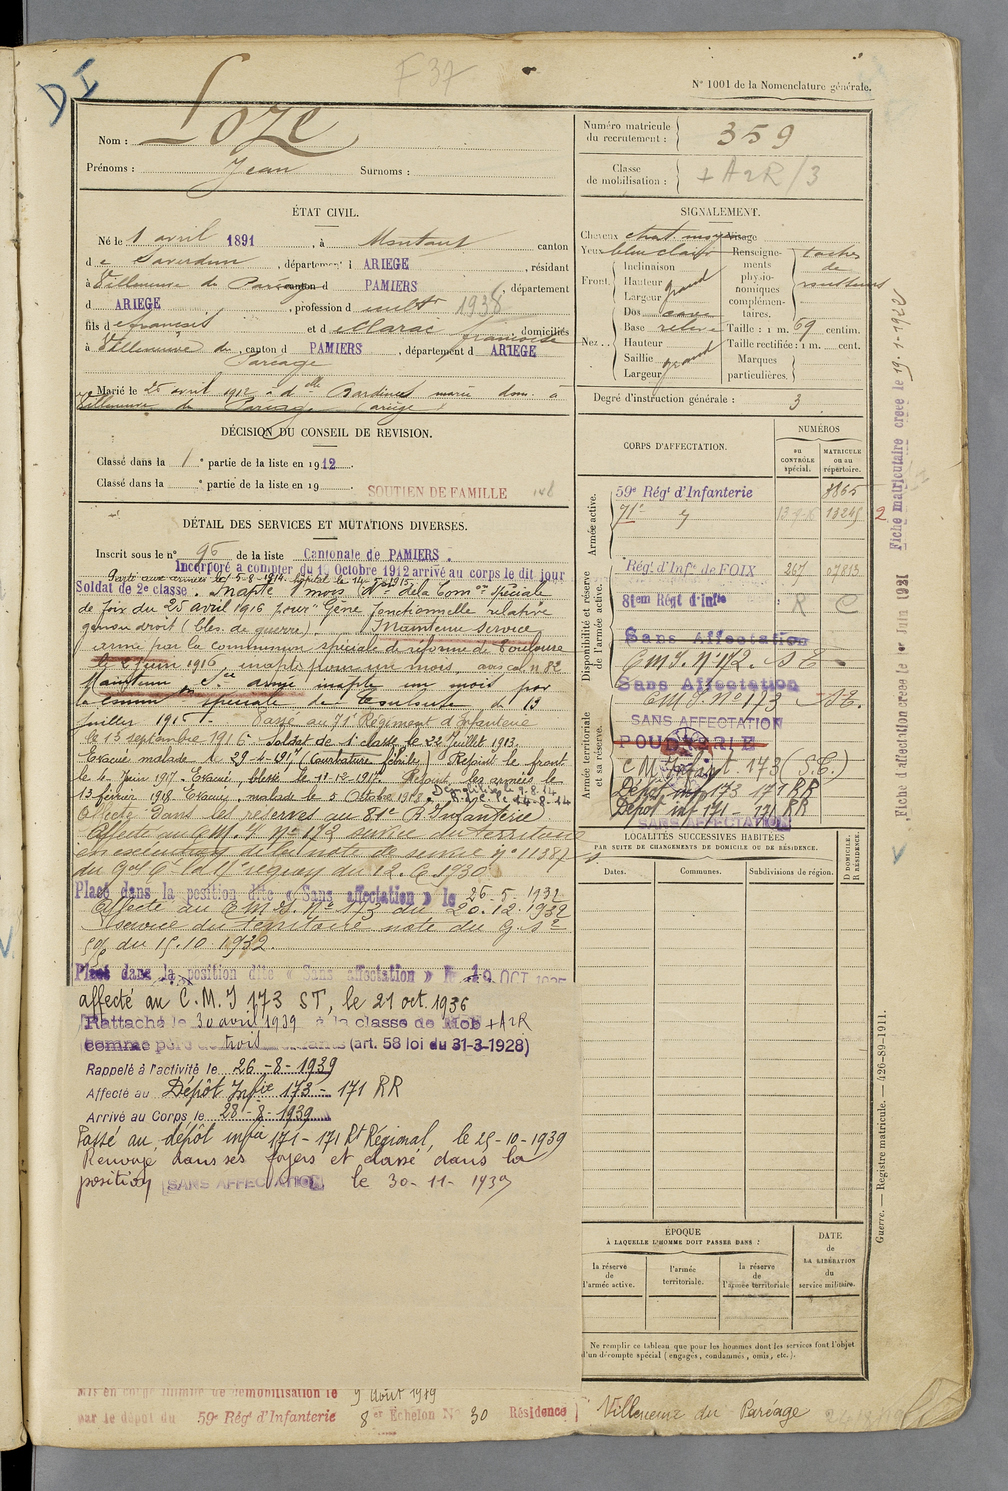 DI
F37
N° 1001 de la Nomenclature générale.
Nom : Loze
Prénoms : Jean Surnoms :
Numéro matricule du recrutement : 359
Classe de mobilisation : + A2R/3
ÉTAT CIVIL.
Né le 1 avril 1891, à Montaut canton
de Saverdun, département d ARIEGE, résidant
à Villeneuve du Paréage canton d PAMIERS, département
d ARIEGE, profession d cultr 1938
fils de françois et de Marac françoise, domiciliés
à Villeneuve du Pareage, canton d PAMIERS, département d ARIEGE
Marié le 25 avril 1912 à dlle Jardines marie dom. à
Villeneuve du Pareage (ariège)
DÉCISION DU CONSEIL DE REVISION.
Classé dans la 1e partie de la liste en 1912.
Classé dans la e partie de la liste en 19
SOUTIEN DE FAMILLE
DÉTAIL DES SERVICES ET MUTATIONS DIVERSES.
Inscrit sous le n° 96 de la liste Cantonale de PAMIERS.
Incorporé a compter du 1 Octobre 1912 arrivé au corps le dit jour
Parti aux armées le 5-8-1914. hôpital le
Soldat de 2e classe. Inapte 1 mois Don de la Comon Spéciale
de foix du 25 avril 1916 pour "Gène fonctionnelle relative
genou droit (Bles. de guerre). Maintenu Service
armé par la commission spéciale de réforme de Toulouse
le 2 juin 1916, inapte pour un mois
Maintenu sce armé inapte un mois par
la comm spéciale de Toulouse du 13
Juillet 1916. Passé au 71e Régiment d'Infanterie
le 13 septembre 1916. Soldat de 1e classe le 22 Juillet 1913.
Evacué malade le 29-4-1917 (Courbature fébrile) Rejoint le front
le 4 Juin 1917. Evacué blessé le 11-12-1917. Rejoint les armées le
13 février 1918. Evacué, malade le 3 Octobre 1918.
Affecté dans les réserves au 81e R. Infanterie
Affecté au C.M.I N° 173 service du territoire
en exécution de la note de service n° 11387
du Gal Ct la 17 région du 12.6.1930
Placé dans la position dite « Sans affectation » le 26-5-1932
Affecté au C M I. N° 173 du 20.12.1932
Service du territoire note du
du 15.10.1932.
Placé dans la position dite « Sans affectation » le 19 OCT 1935
affecté au C.M.I 173 ST, le 21 oct. 1936
Rattaché le 30 avril 1939 à la classe de Mob + A2R
comme père de trois enfants (art. 58 loi du 31-3-1928)
Rappelé à l'activité le 26-8-1939
Affecté au Dépôt Infie 173 - 171 RR
Arrivé au Corps le 28-8-1939
Passé au dépôt infie 171 - 171 Rt Régional, le 25-10-1939
Renvoyé dans ses foyers et classé dans la
position SANS AFFECTATION le 30-11-1939
Mis en congé illimité de démobilisation le 9 Août 1919
par le dépôt du 59e Régt d'Infanterie 8e Échelon N° 30 Résidence
Villeneuve du Paréage
SIGNALEMENT.
Cheveux chat. moyen Visage
Yeux bleu clair
Front. Inclinaison
Hauteur grand
Largeur
Nez.. Dos cave
Base relevé
Hauteur
Saillie grand
Largeur
Renseignements physionomiques complémentaires. taches de rousseurs
Taille : 1 m. 69 centim.
Taille rectifiée : 1 m. cent.
Marques particulières.
Degré d'instruction générale : 3
CORPS D'AFFECTATION.
NUMÉROS
au CONTRÔLE spécial.
MATRICULE ou au répertoire.
Armée active.
59e Régt d'Infanterie 3865
71e 13245
Disponibilité et réserve de l'armée active.
Régt d'Infie de FOIX 267 07813
81em Régt d'Infie R C
Sans Affectation
C M I. N° 172. S T.
Sans Affectation
C M I N° 173 S T.
Armée territoriale et sa réserve.
SANS AFFECTATION
POUDRERIE
C M Infant. 173 (S.T.)
Dépôt inf 173 171 RR
Dépôt inf 171 - 171 RR
SANS AFFECTATION
LOCALITÉS SUCCESSIVES HABITÉES
PAR SUITE DE CHANGEMENTS DE DOMICILE OU DE RÉSIDENCE.
Dates. Communes. Subdivisions de région. D DOMICILE. R RÉSIDENCE.
ÉPOQUE
À LAQUELLE L'HOMME DOIT PASSER DANS :
la réserve de l'armée active.
l'armée territoriale.
la réserve de l'armée territoriale
DATE de LA LIBÉRATION du service militaire.
Ne remplir ce tableau que pour les hommes dont les services font l'objet
d'un décompte spécial (engagés, condamnés, omis, etc.).
Fiche matriculaire créée le 19-1-1922
Fiche d'affectation créée le 1er Juin 1931
Guerre. — Registre matricule. — 426-89-1911.